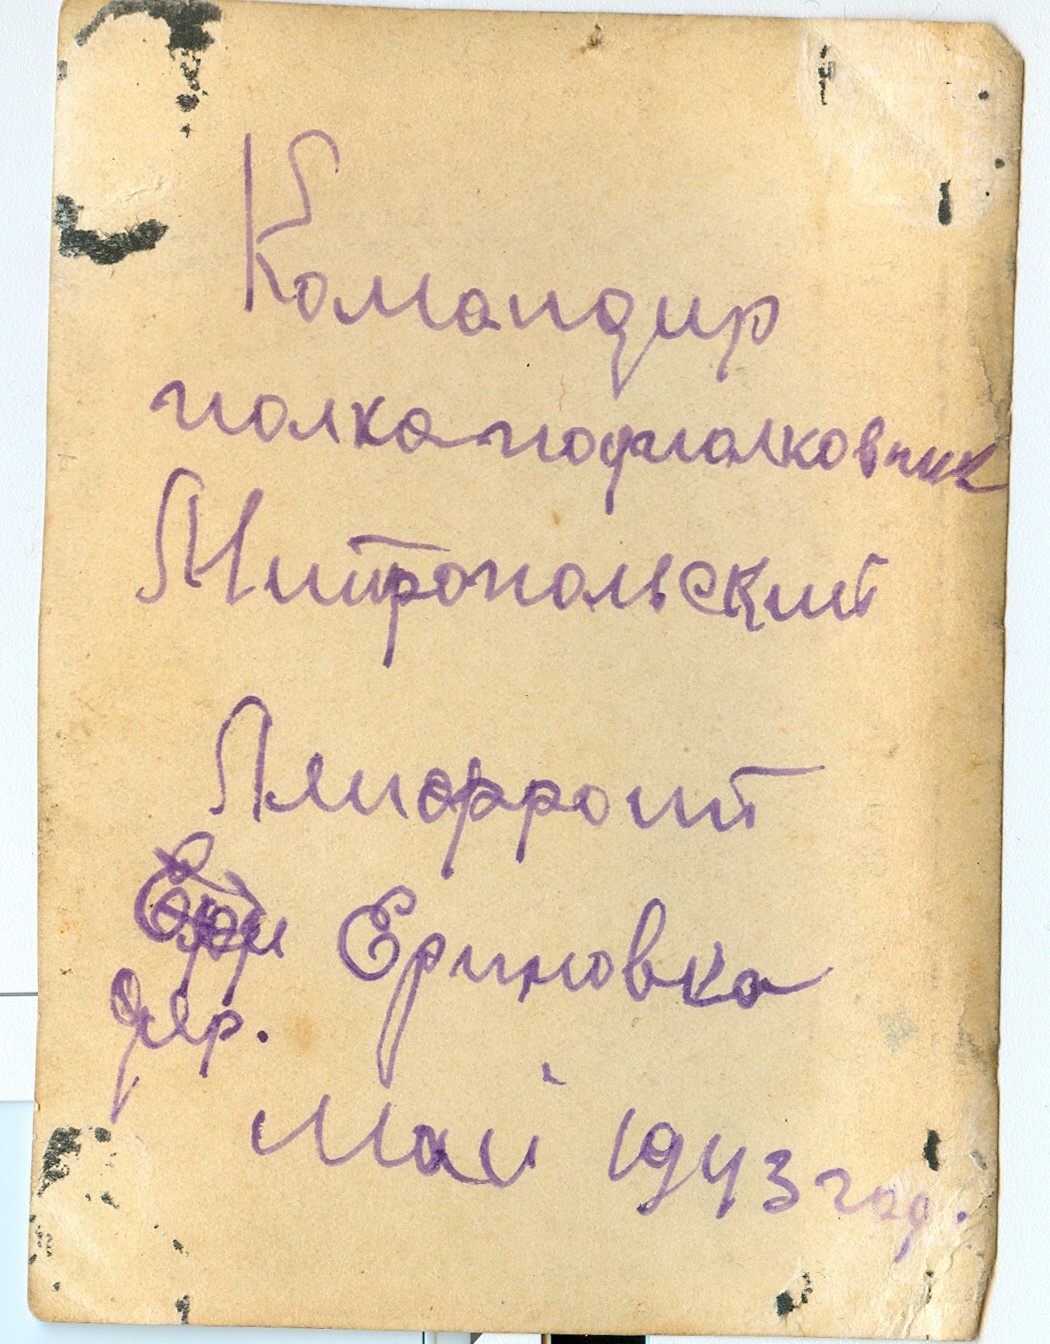 Командир
полка подполковник
Митропольский
Ленфронт
Ериновка
дер.
май 1943 год.